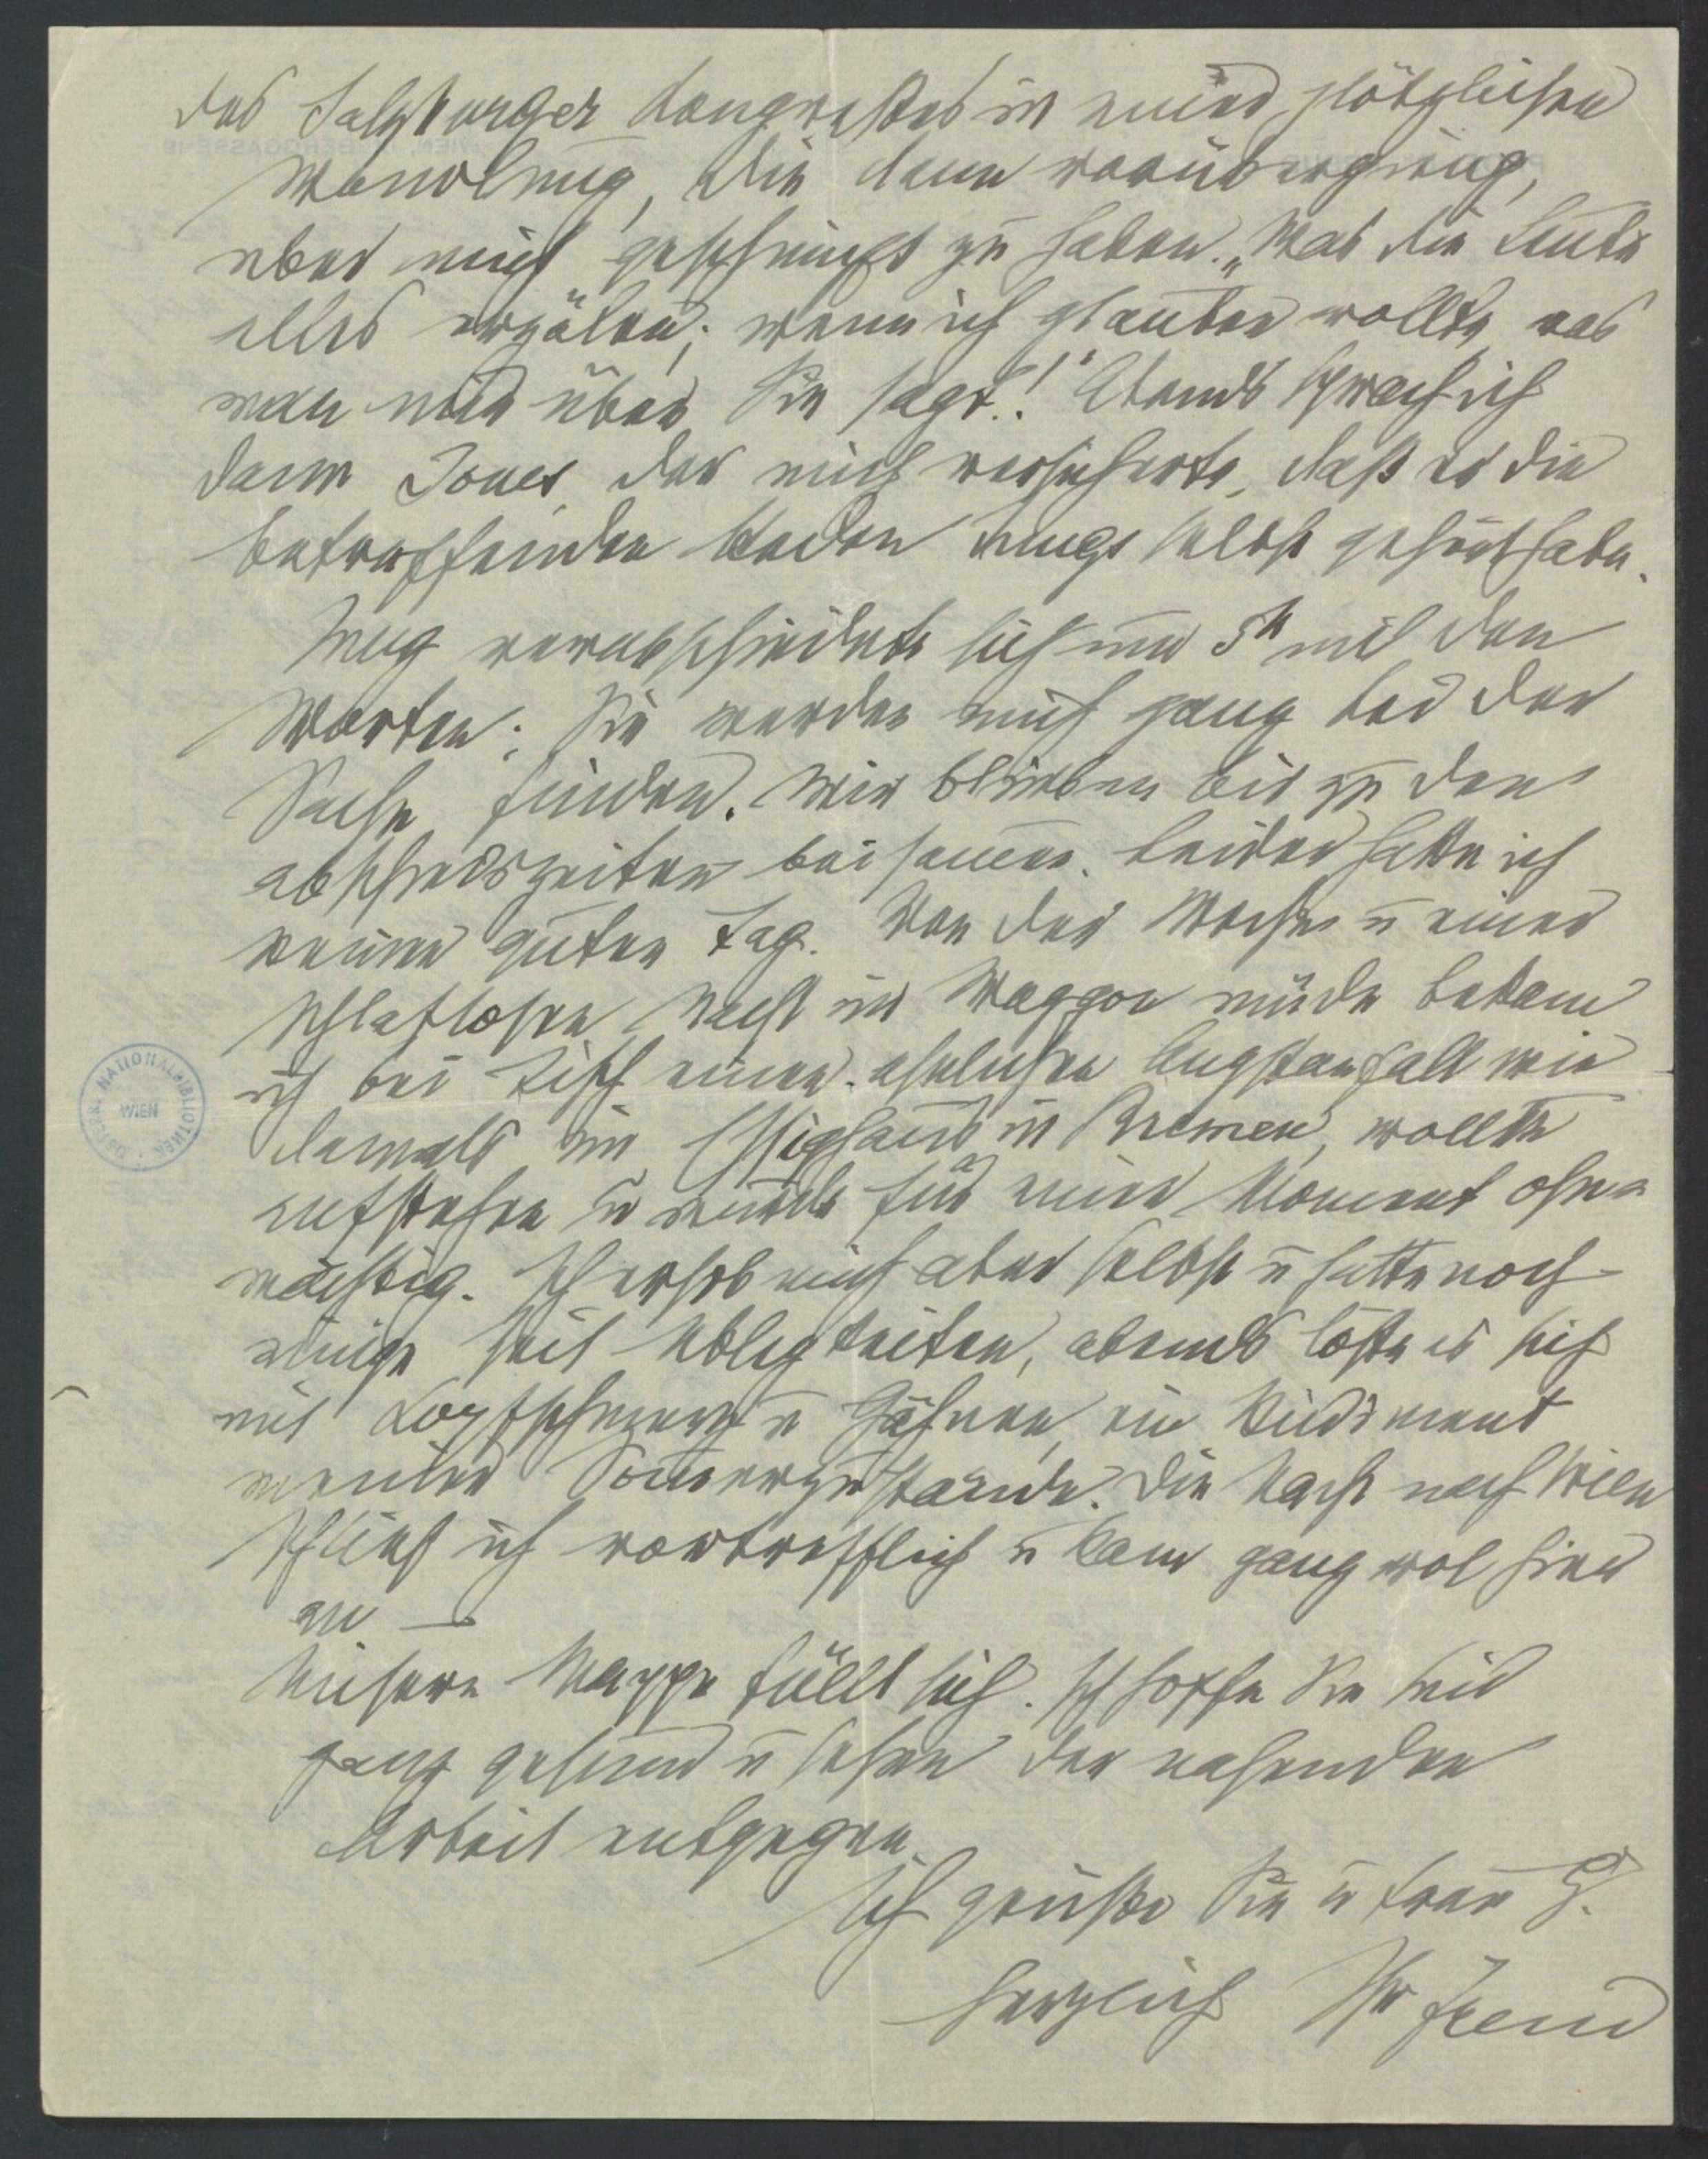 des Salzburger Kongresses in einer plötzlichen
Wandlung, die dann vorüberging,
über mich geschimpft zu haben. „Was die Leute
alles erzälen; wenn ich glauben wollte was
man mir über Sie sagt!" Abends sprach ich
dann Jones, der mich versicherte, daß er die
betreffenden Reden Jungs selbst gehört habe.
Jung verabschiedete sich um 5h mit den
Worten: Sie werden mich ganz bei der
Sache finden. Wir blieben bis zu den
Abschiedszeiten beisamen. Leider hatte ich
keinen guten Tag. Von der Woche u einer
schlaflosen Nacht im Waggon müde bekam
ich bei Tisch einen ähnlichen Angstanfall wie
damals im Essighaus in Bremen, wollte
aufstehen u wurde für einen Moment ohn-
mächtig. Ich erhob mich aber selbst u hatte noch
einige Zeit Übligkeiten, abends löste es sich
mit Kopfschmerz u Gähnen, ein Rudiment
meiner Sommerzustände. Die Nacht nach Wien
schlief ich vortrefflich u kam ganz wol hier
an —
Unsere Mappe füllt sich. Ich hoffe Sie sind
ganz gesund u sehen der nahenden
Arbeit entgegen.
Ich grüße Sie u Frau G.
herzlich Ihr Freud
ÖSTERR. NATIONALBIBLIOTHEK
WIEN
WIEN, IX. BERGGASSE 19